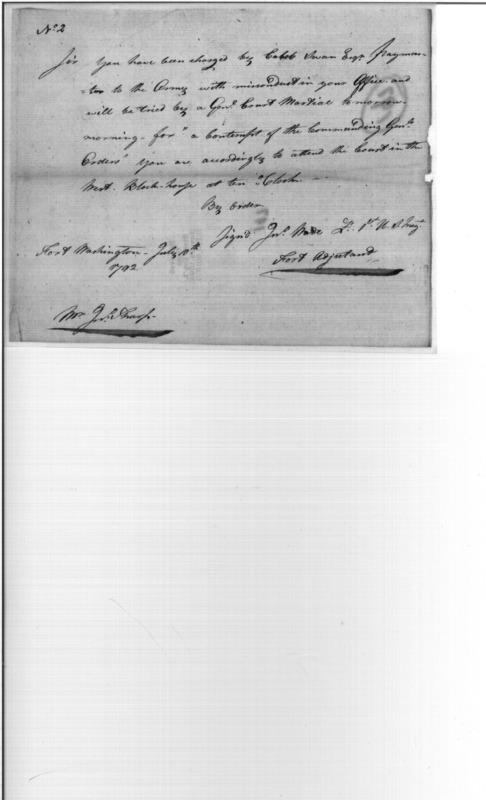 No. 2
Sir You have been charged by Caleb Swan Esqr. Paymas-
-ter to the Army with misconduct in your Office and
will be tried by a Genl. Court Martial to morrow
morning - for "a contempt of the Commanding Genls.
Orders" You are accordingly to attend the Court in the
West. Block-house at ten oClock -
By Order
Signd. Jno. Wade Lt. 1st. U S Regt.
Fort Adjutant
Fort Washington - July 10th.
1792
Mr. Jos. Sharp -